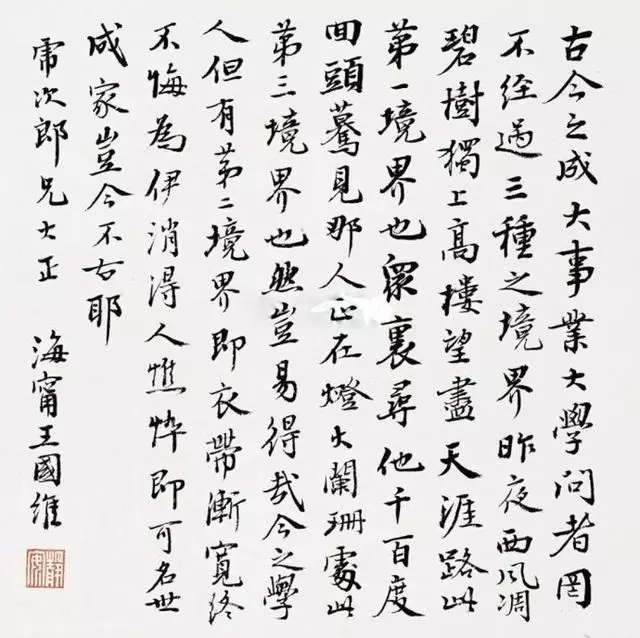 古今之成大事業大學問者罔
不經過三種之境界昨夜西風凋
碧樹獨上高樓望盡天涯路此
第一境界也眾裏尋他千百度
回頭驀見那人正在燈火闌珊處此
第三境界也然豈易得哉今之學
人但有第二境界即衣帶漸寬終
不悔為伊消得人憔悴即可名世
成家豈今不古耶
霈次郎兄大正
海甯王國維
靜安